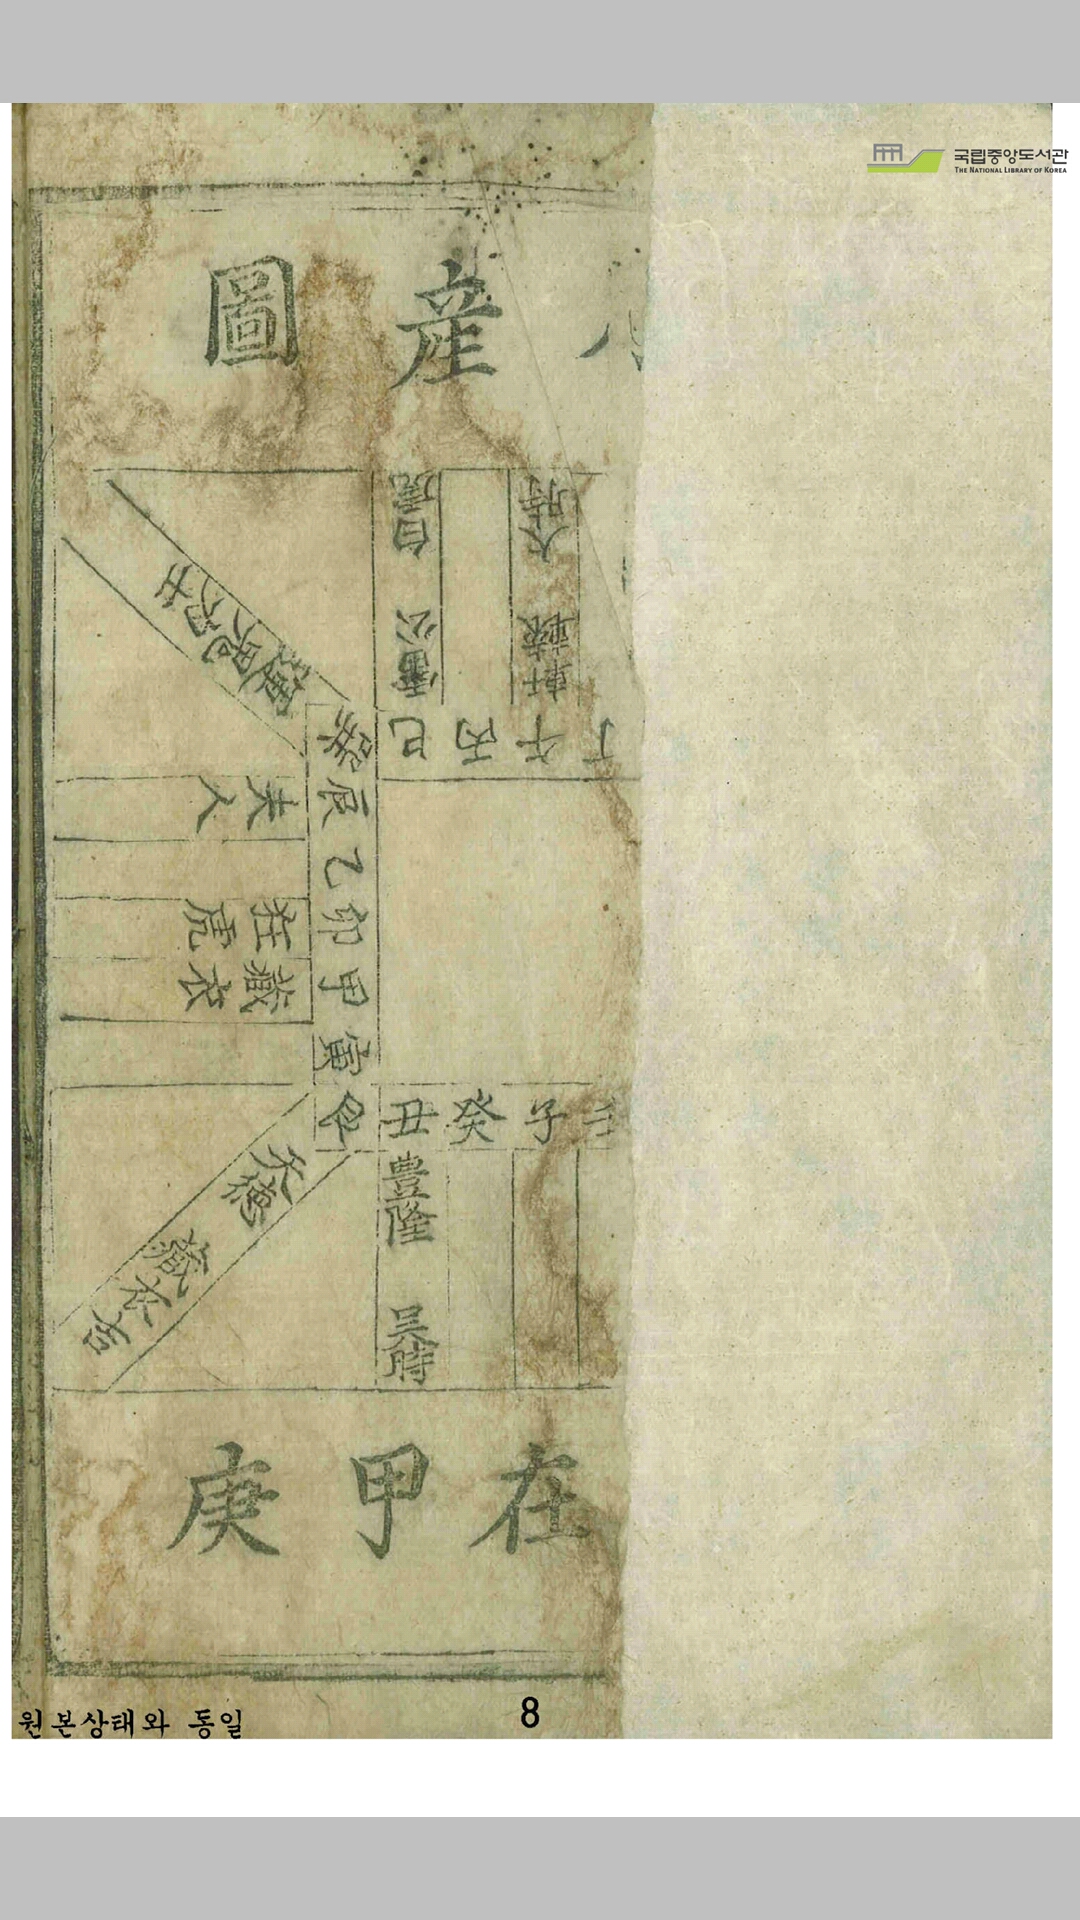 국립중앙도서관
THE NATIONAL LIBRARY OF KOREA
產圖
大時
軒轅
白虎
雷公
丁午丙巳巽
辰
乙
卯
甲
寅
艮
夫人
狂虎
藏衣
子癸丑
天德
藏衣吉
豊隆
吴時
在甲庚
원본상태와 동일
8